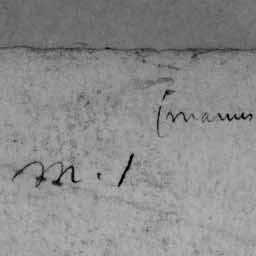 (manus
m. 1